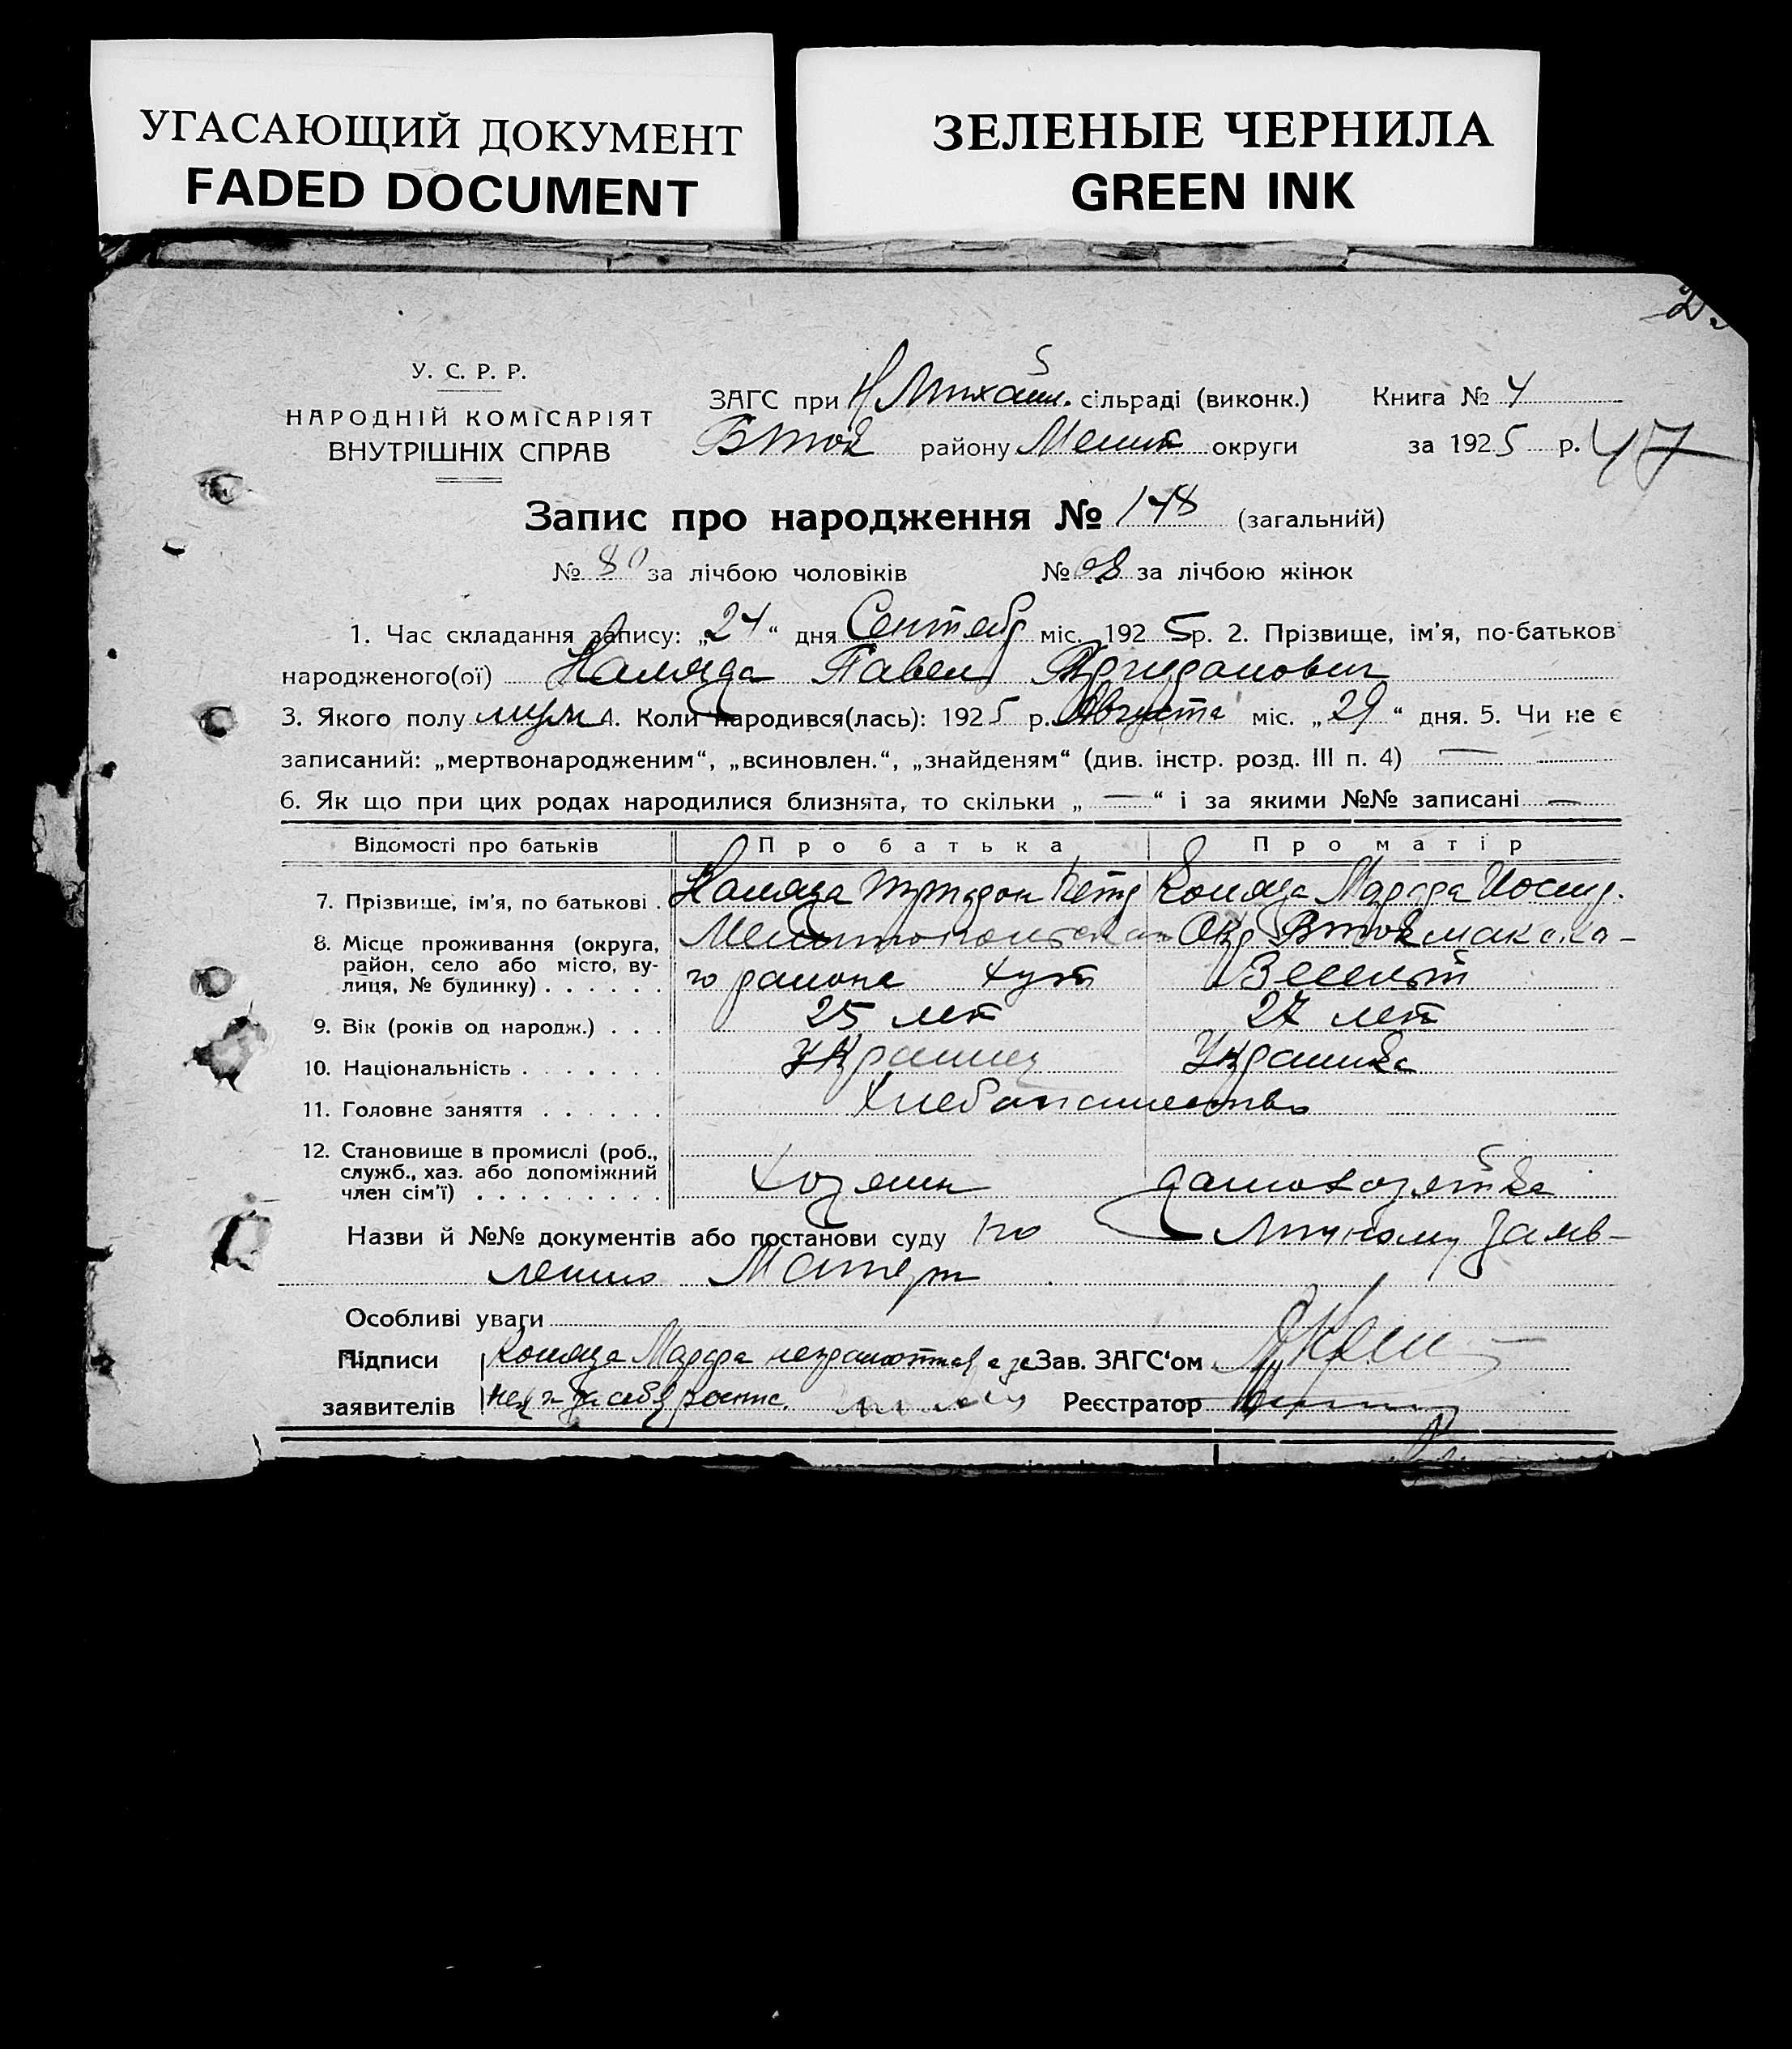 УГАСАЮЩИЙ ДОКУМЕНТ
FADED DOCUMENT
ЗЕЛЕНЫЕ ЧЕРНИЛА
GREEN INK
У. С. Р. Р.
НАРОДНІЙ КОМІСАРІЯТ
ВНУТРІШНІХ СПРАВ
ЗАГС при Н Михайл. сільраді (виконк.) Книга № 4
Вток району Мелит округи за 1925 р. 47
Запис про народження № 148 (загальний)
№ 80 за лічбою чоловіків № 68 за лічбою жінок
1. Час складання запису: „24“ дня Сентебр міс. 1925р. 2. Прізвище, ім'я, по-батьков
народженого(ої) Коляда Павел
3. Якого полу муж 4. Коли народився(лась): 1925 р. Августа міс. „29“ дня. 5. Чи не є
записаний: „мертвонародженим“, „всиновлен.“, „знайденям“ (див. інстр. розд. III п. 4) —
6. Як що при цих родах народилися близнята, то скільки „ — “ і за якими №№ записані —
Відомості про батьків Про батька Про матір
7. Прізвище, ім'я, по батькові . Коляда Петр Коляда Марфа Иосиф.
8. Місце проживання (округа, район, село або місто, вулиця, № будинку) . . . . . . Мелитопольская Окр Втокмакска-
го района хут Веселый
9. Вік (років од народж.) . . . 25 лет 27 лет
10. Національність . . . . . . . Украинец Украинка
11. Головне заняття . . . . . . Хлебопашество
12. Становище в промислі (роб., служб., хаз. або допоміжний член сім'ї) . . . . . . . . . Хозяин домохозяйка
Назви й №№ документів або постанови суду по личному заяв-
лению Матери
Особливі уваги
Підписи Коляда Марфа неграмотная а за Зав. ЗАГС'ом
заявителів нея и за себя роспис. Реєстратор